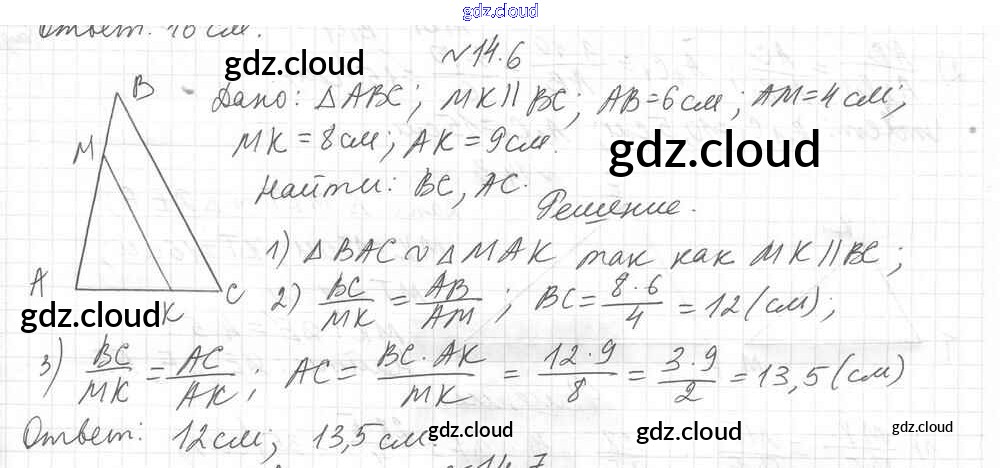 gdz.cloud
Ответ: 16 см.
№14.6
gdz.cloud
Дано: △ABC; MK∥BC; AB=6см; AM=4см;
MK=8см; AK=9см.
gdz.cloud
Найти: BC, AC.
Решение.
B
M
A
K
C
1) △BAC ∾ △MAK так как MK∥BC;
gdz.cloud
2) BC/MK = AB/AM; BC = 8·6/4 = 12 (см);
3) BC/MK = AC/AK; AC = BC·AK/MK = 12·9/8 = 3·9/2 = 13,5 (см)
Ответ: 12см; 13,5 см.
gdz.cloud gdz.cloud gdz.cloud
№14.7